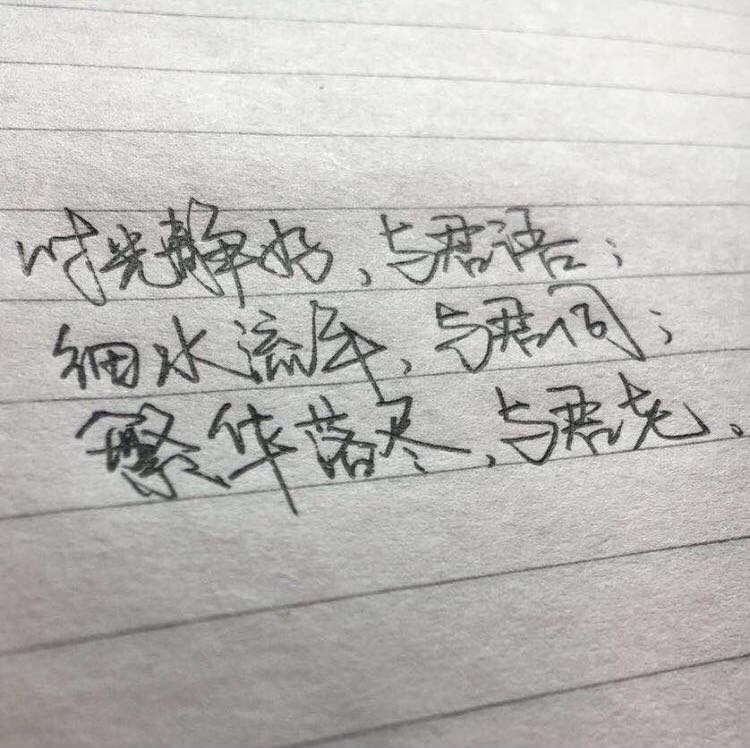 时光静好、与君语；
细水流年、与君同；
繁华落尽、与君老。